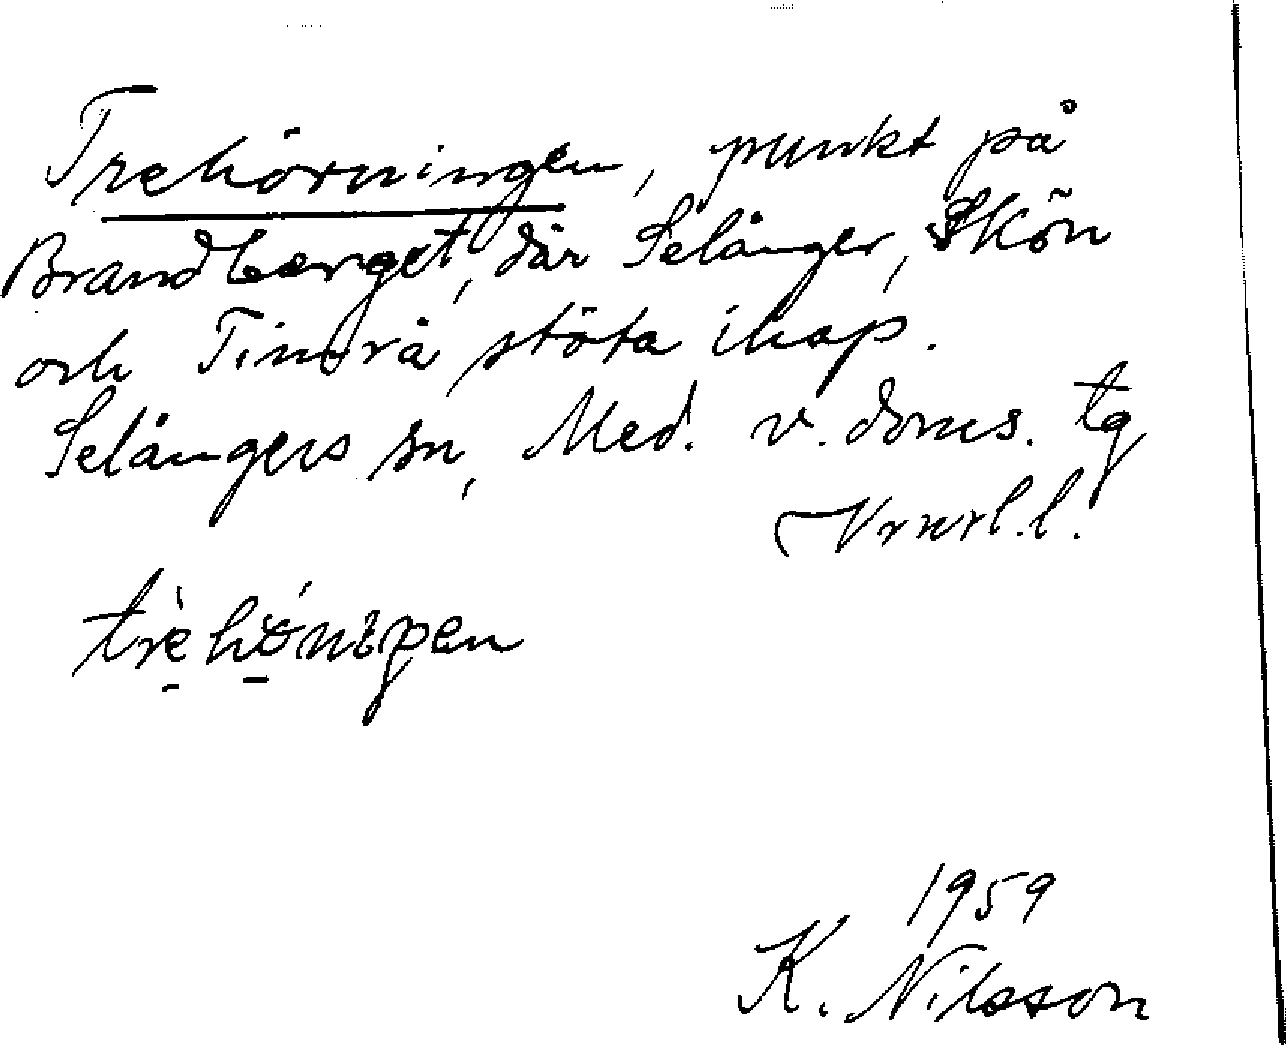 Trehörningen, punkt på
Brandberget, där Selånger, Skön
och Timrå stöta ihop.
Selångers sn, Med. v. doms. tg
Vrnrl.l.
trèhó̱nıŋen
1959
K. Nilsson